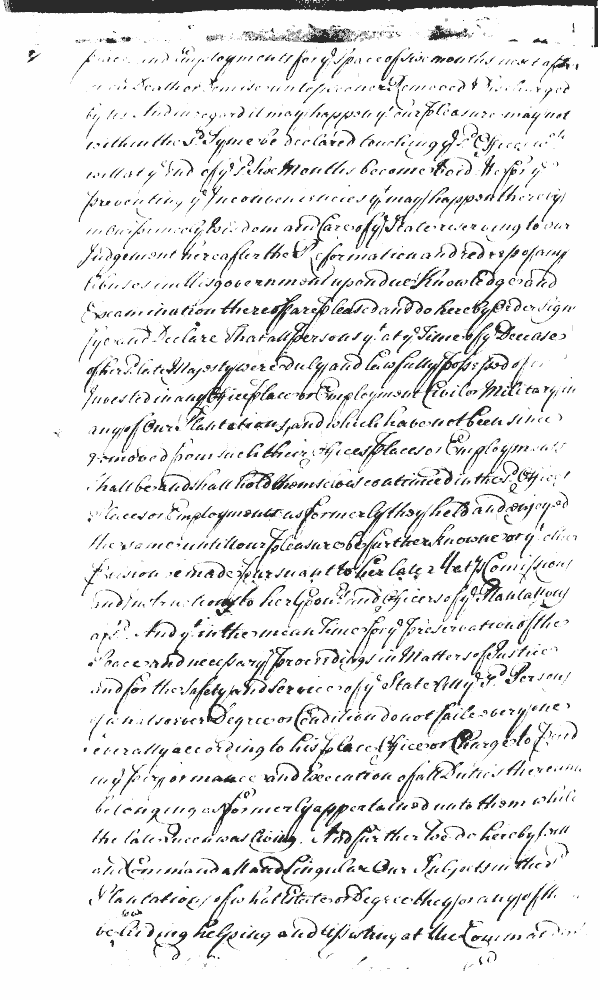 places and Employments for y^e Space of six months next after
our Death or Demise unless sooner Removed & Discharged
by us And in regard it may happen y^t our pleasure may not
within the s^d Tyme be declared touching y^e s^d Offices w^ch
will at y^e End of y^e s^d Six Months become Void We for y^e
preventing y^e Inconveniencies y^t may happen thereby
in our princely Wisdom and Care of y^e State reserving to our
Judgement hereafter the Reformation and redress of any
abuses in Misgovernment upon due Knowledge and
Examination thereof are pleased and do hereby Order Sign
fye and Declare That all Persons y^t at y^e Time of y^e Decease
of her late Majesty were duly and Lawfully possessed of or
Invested in any Office place or Employment Civil or Military in
any of Our Plantations, and which have not been since
removed from such their Offices places or Employments
Shall be and shall hold themselves continued in the s^d Offices
places or Employments as formerly they held and enjoyed
the same untill our pleasure be further knowne or y^t other
Provision be made pursuant to her late Ma^tys Comissions
and Instructions to her Gov^rs and Officers of y^e Plantations
afs^d. And y^t in the mean Time for y^e preservation of the
Peace and necessary Proceedings in Matters of Justice
and for the safety and Service of y^e State All y^e s^d Persons
of whatsoever Degree or Condition do not faile every one
severally according to his place Office or Charge to
performance and Execution of all Duties thereunto
belonging as formerly appertained unto them while
the late Queen was living. And further We do hereby will
and Command all and Singular Our Subjects in the s^d
Plantations of what Estate or Degree they or any of them
be Aiding helping and Assisting at the Commandm^t